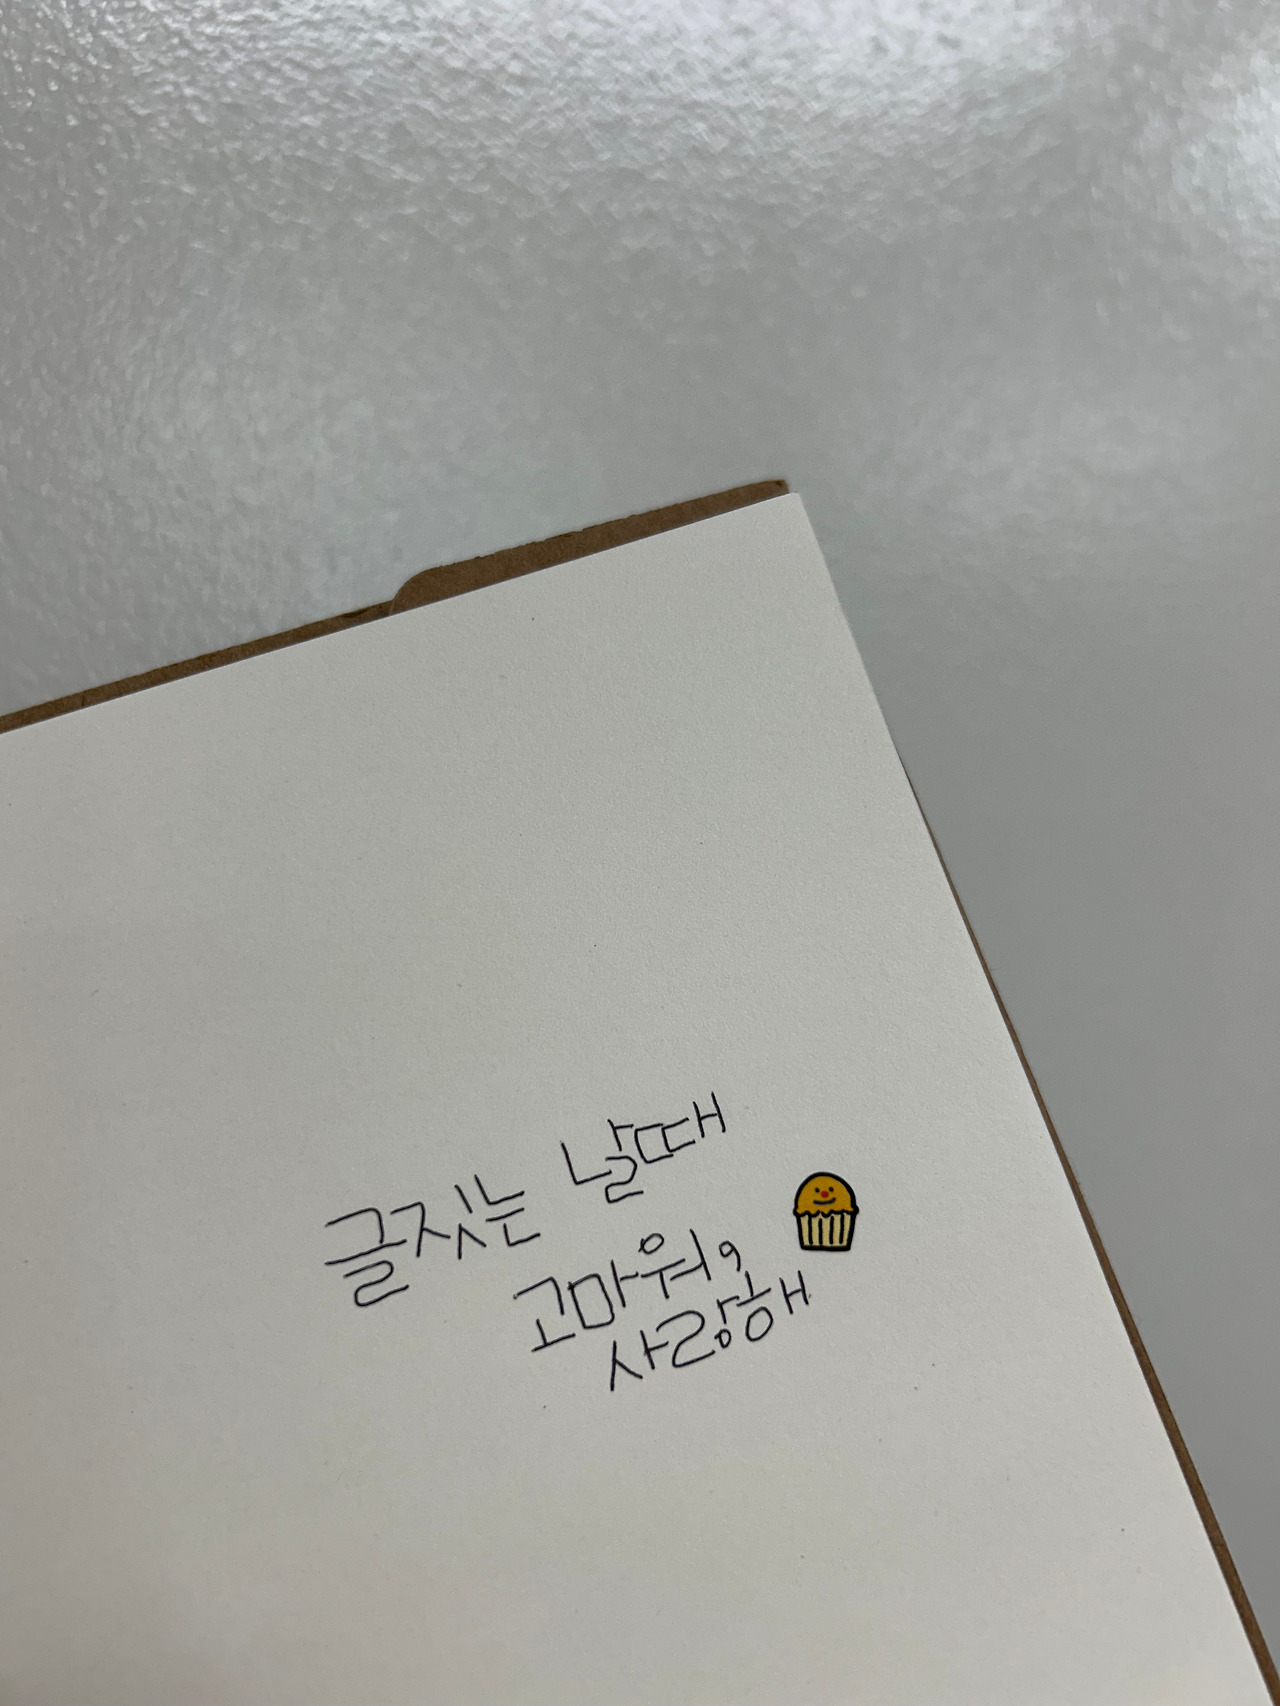 글짓는 날때
고마워,
사랑해